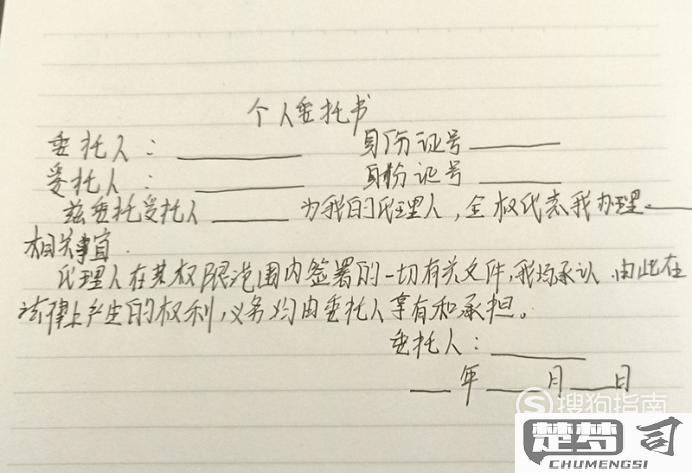 个人委托书
委托人：________ 身份证号______
受托人：________ 身份证号______
兹委托受托人______为我的代理人，全权代表我办理.___
相关事宜.
代理人在其权限范围内签署的一切有关文件，我均承认.由此在
法律上产生的权利，义务均由委托人享有和承担。
委托人：________
___年____月___日
搜狗指南
楚梦司
CHUMENGSI